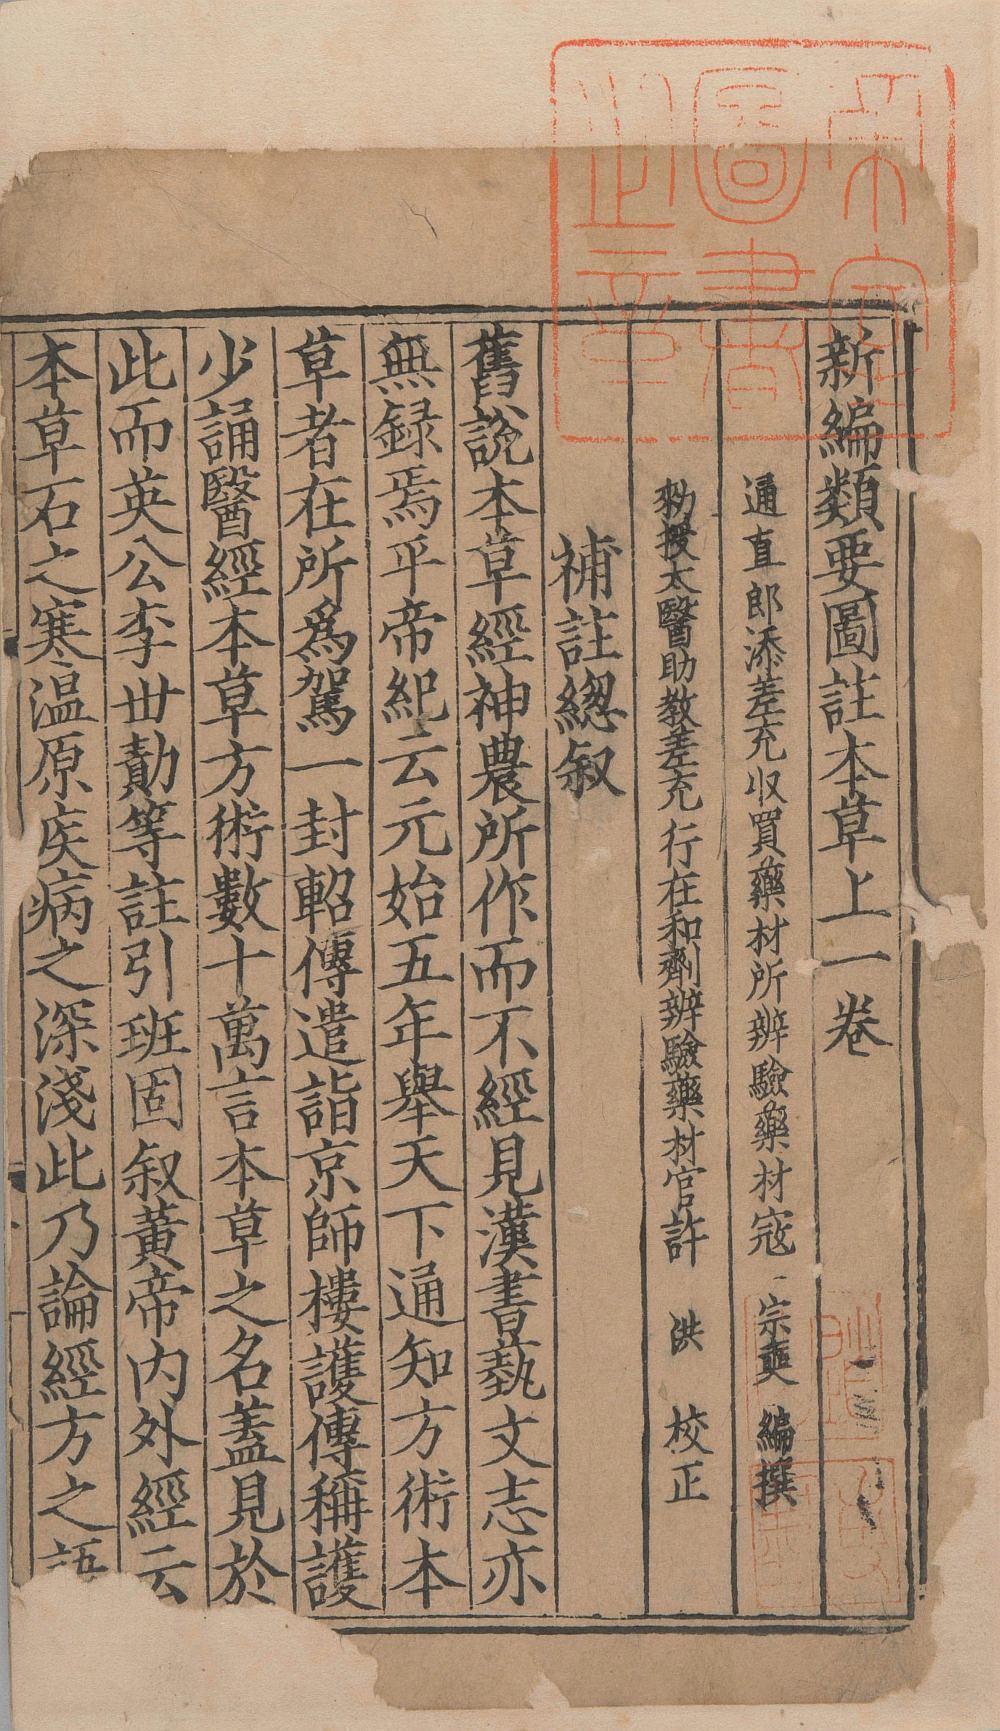 新編類要圖註本草上一卷
通直郎添差充收買藥材所辨驗藥材寇 宗奭 編撰
勑授太醫助教差充行在和劑辨驗藥材官許 洪 校正
補註緫叙
舊說本草經神農所作而不經見漢書藝文志亦
無録焉平帝紀云元始五年舉天下通知方術本
草者在所爲駕一封軺傳遣詣京師樓護傳稱護
少誦醫經本草方術數十萬言本草之名蓋見於
此而英公李世勣等註引班固叙黃帝内外經云
本草石之寒温原疾病之深淺此乃論經方之語
圖書
之章